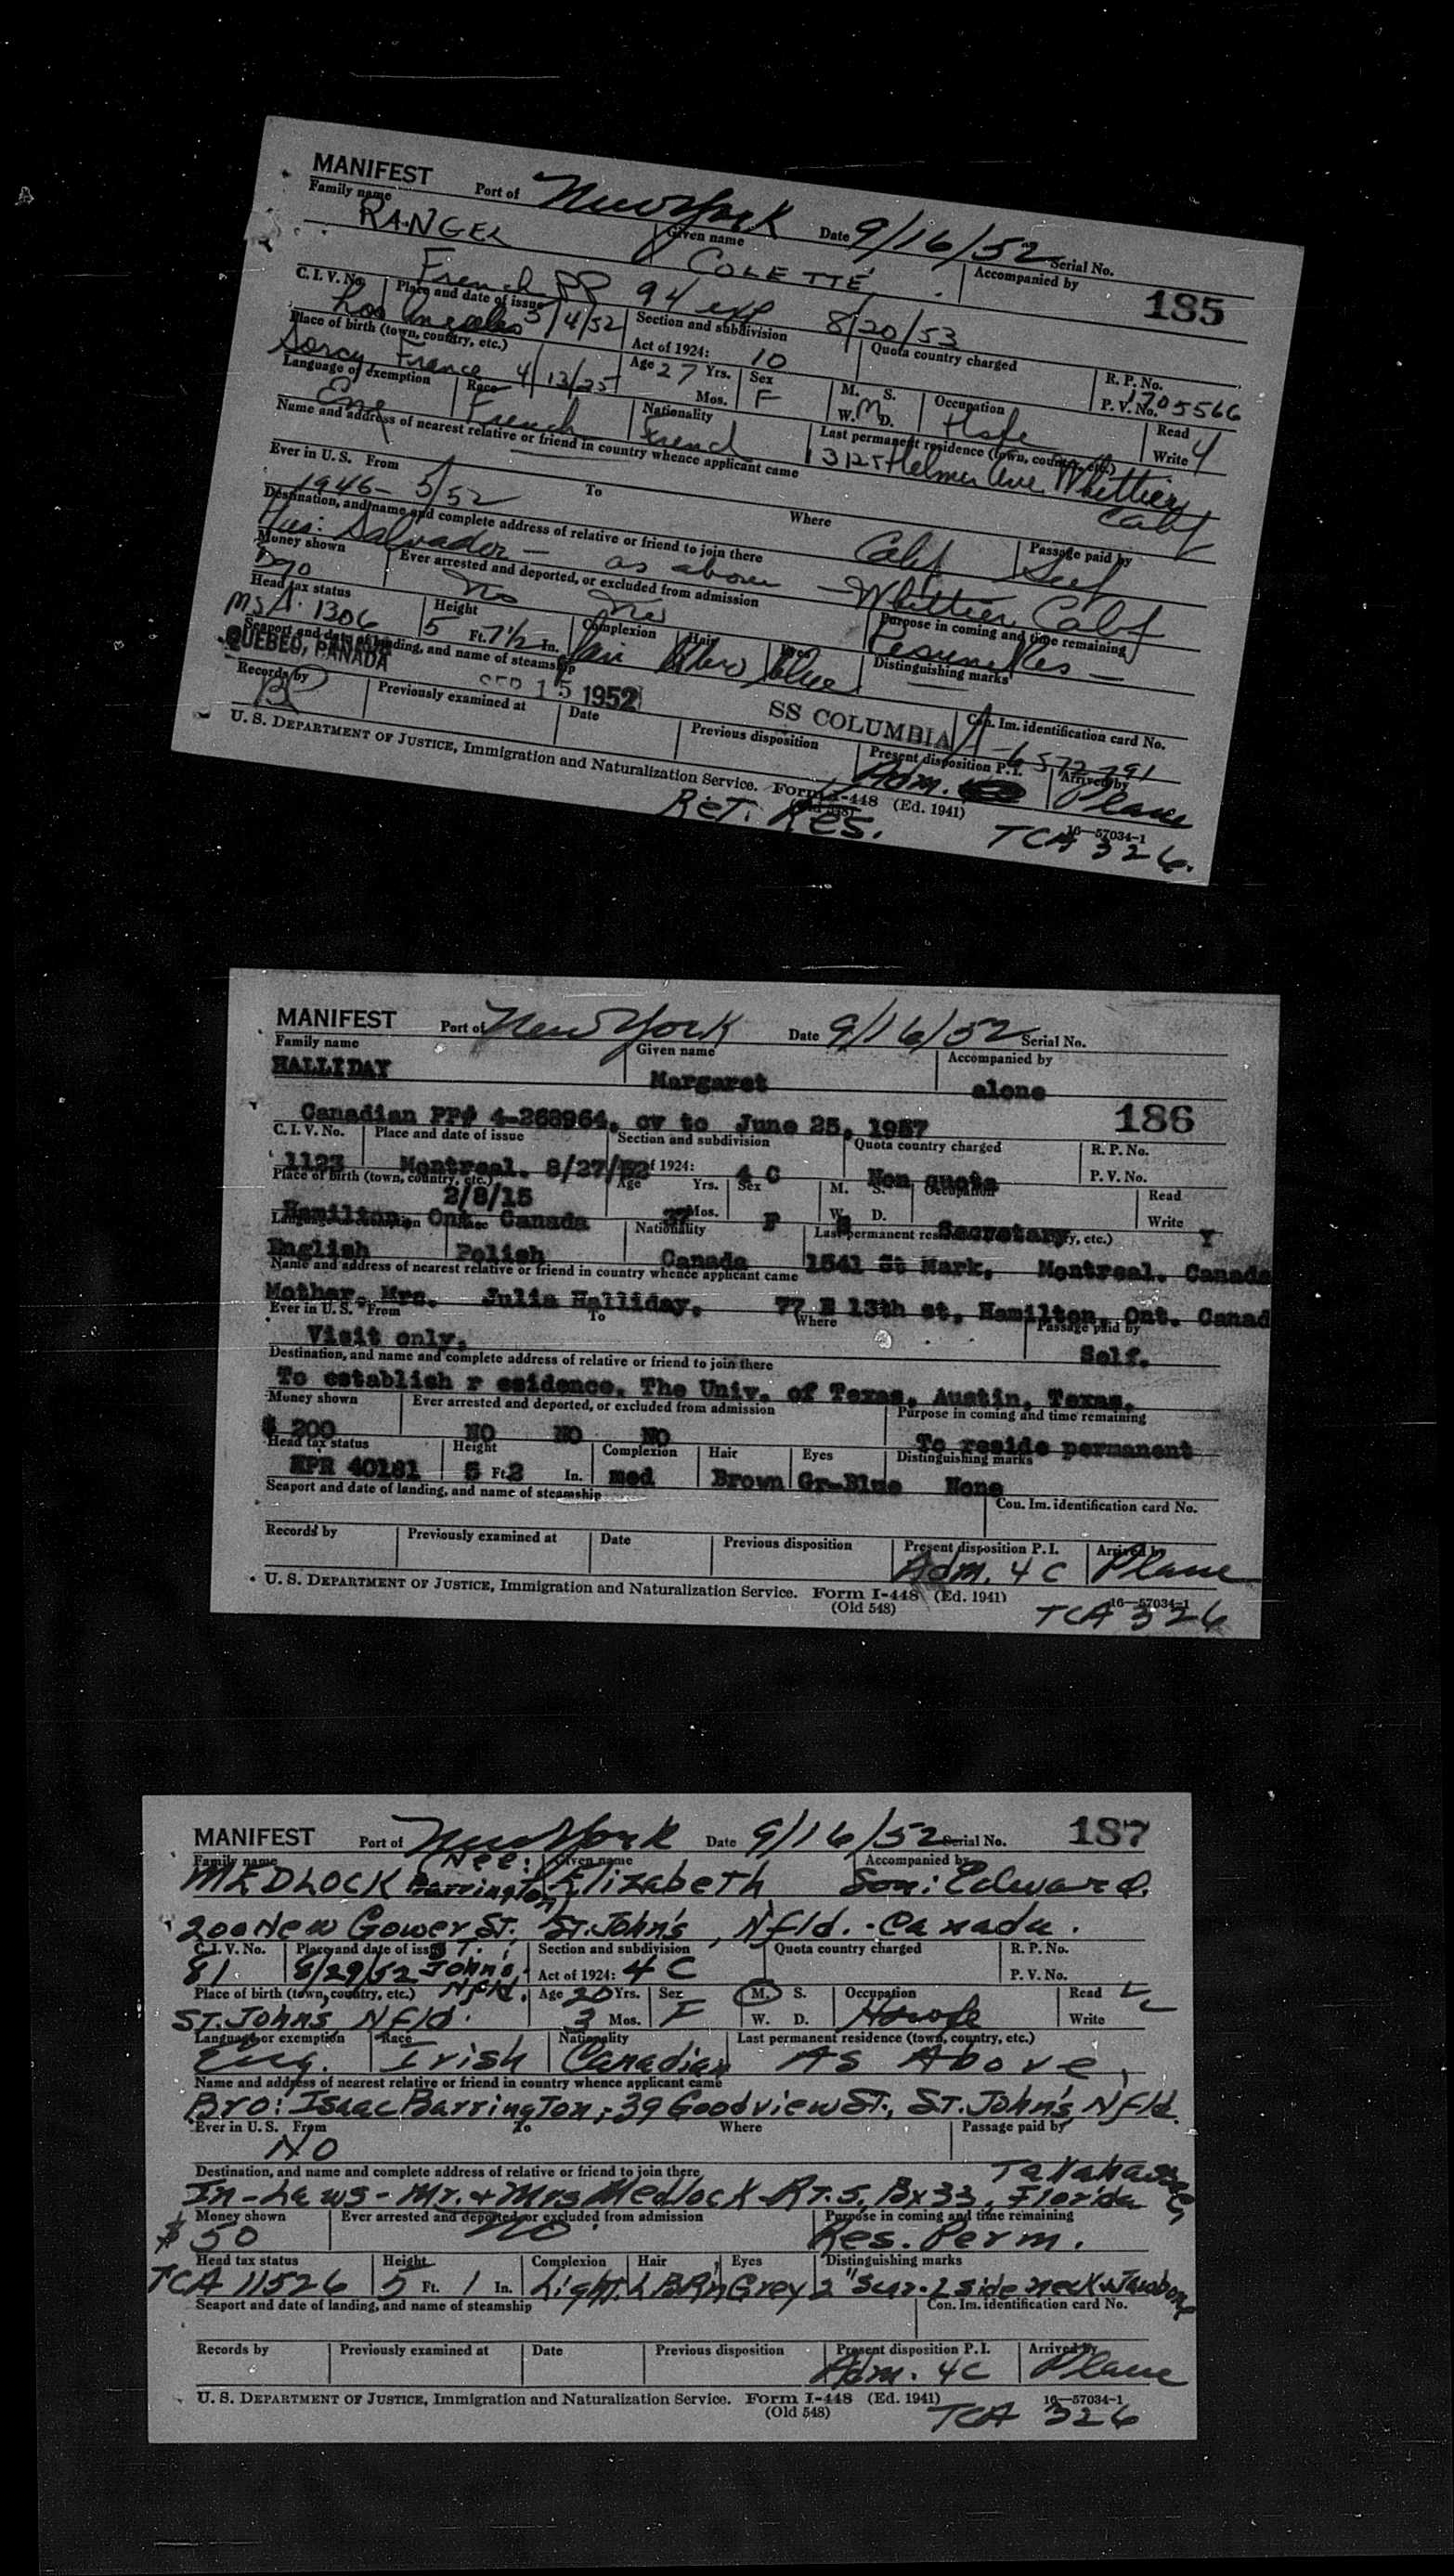 MANIFEST Port of New York Date 9/16/52 Serial No.
Family name Given name Accompanied by
RANGEL COLETTE 185
French PP 94 exp 8/20/53
C. I. V. No. Place and date of issue Section and subdivision Quota country charged R. P. No.
Los Angeles 5/4/52 Act of 1924: 10 P. V. No. 1705566
Place of birth (town, country, etc.) Age Yrs. Sex M. S. Occupation Read
Sorcy France 4/13/25 27 Mos. F W. M D. Hsfe Write
Language or exemption Race Nationality Last permanent residence (town, country, etc.)
Eng French French 13125 Helmer Ave, Whittier, Calif
Name and address of nearest relative or friend in country whence applicant came
Ever in U. S. From To Where Passage paid by
1946- 5/52 Calif Self
Destination, and name and complete address of relative or friend to join there
Hus: Salvador - as above - Whittier Calif
Money shown Ever arrested and deported, or excluded from admission Purpose in coming and time remaining
No No Resume Res -
Head tax status Height Complexion Hair Eyes Distinguishing marks
MSA. 1306 5 Ft. 7½ In. Fair Blue
Seaport and date of landing, and name of steamship Con. Im. identification card No.
QUEBEC, CANADA SEP 15 1952 SS COLUMBIA A-6572791
Records by Previously examined at Date Previous disposition Present disposition P.I. Arrived by
Adm. Plane
U. S. DEPARTMENT OF JUSTICE, Immigration and Naturalization Service. Form I-448 (Ed. 1941) 16—57034-1
(Old 548)
RET. RES. TCA 326.
MANIFEST Port of New York Date 9/16/52 Serial No.
Family name Given name Accompanied by
HALLIDAY Margaret alone
186
Canadian PP# 4-268964, ov to June 25, 1957
C. I. V. No. Place and date of issue Section and subdivision Quota country charged R. P. No.
1123 Montreal. 8/27/52 of 1924: 4 C Non quota P. V. No.
Place of birth (town, country, etc.) Age Yrs. Sex M. S. Occupation Read
2/8/15
Hamilton, Ont. Canada 37 Mos. F W. D. Secretary Write Y
Language or exemption Race Nationality Last permanent residence (town, country, etc.)
English Polish Canada 1541 St Mark, Montreal. Canada
Name and address of nearest relative or friend in country whence applicant came
Mother. Mrs. Julia Halliday. 77 E 13th st, Hamilton, Ont. Canad
Ever in U. S. From To Where Passage paid by
Visit only. Self.
Destination, and name and complete address of relative or friend to join there
To establish r esidence. The Univ. of Texas, Austin, Texas.
Money shown Ever arrested and deported, or excluded from admission Purpose in coming and time remaining
$ 200 NO NO NO To reside permanent
Head tax status Height Complexion Hair Eyes Distinguishing marks
HPR 40181 5 Ft. 2 In. med Brown Gr-Blue None
Seaport and date of landing, and name of steamship Con. Im. identification card No.
Records by Previously examined at Date Previous disposition Present disposition P.I. Arrived by
Adm. 4C Plane
U. S. DEPARTMENT OF JUSTICE, Immigration and Naturalization Service. Form I-448 (Ed. 1941) 16—57034-1
(Old 548) TCA 326
MANIFEST Port of New York Date 9/16/52 Serial No. 187
Family name Given name Accompanied by
MEDLOCK (Nee: Barrington) Elizabeth Son: Edward.
200 New Gower St. St. John's, Nfld. - Canada.
C. I. V. No. Place and date of issue Section and subdivision Quota country charged R. P. No.
81 8/29/52 St. Johns. Nfld. Act of 1924: 4 C P. V. No.
Place of birth (town, country, etc.) Age 20 Yrs. Sex M. S. Occupation Read
St. John's, Nfld. 3 Mos. F W. D. Hswfe Write
Language or exemption Race Nationality Last permanent residence (town, country, etc.)
Eng. Irish Canadian As Above,
Name and address of nearest relative or friend in country whence applicant came
Bro: Isaac Barrington; 39 Goodview St., St. John's, Nfld.
Ever in U. S. From To Where Passage paid by
NO
Destination, and name and complete address of relative or friend to join there
In-Laws - Mr. & Mrs Medlock Rt. 5, Bx 33, Tallahassee, Florida
Money shown Ever arrested and deported, or excluded from admission Purpose in coming and time remaining
$ 50 NO. Res. Perm.
Head tax status Height Complexion Hair Eyes Distinguishing marks
TCA 11526 5 Ft. 1 In. Light. L BRn Grey 2" Scar-L side neck & Jawbone
Seaport and date of landing, and name of steamship Con. Im. identification card No.
Records by Previously examined at Date Previous disposition Present disposition P.I. Arrived by
Adm. 4C Plane
U. S. DEPARTMENT OF JUSTICE, Immigration and Naturalization Service. Form I-448 (Ed. 1941) 16—57034-1
(Old 548) TCA 326